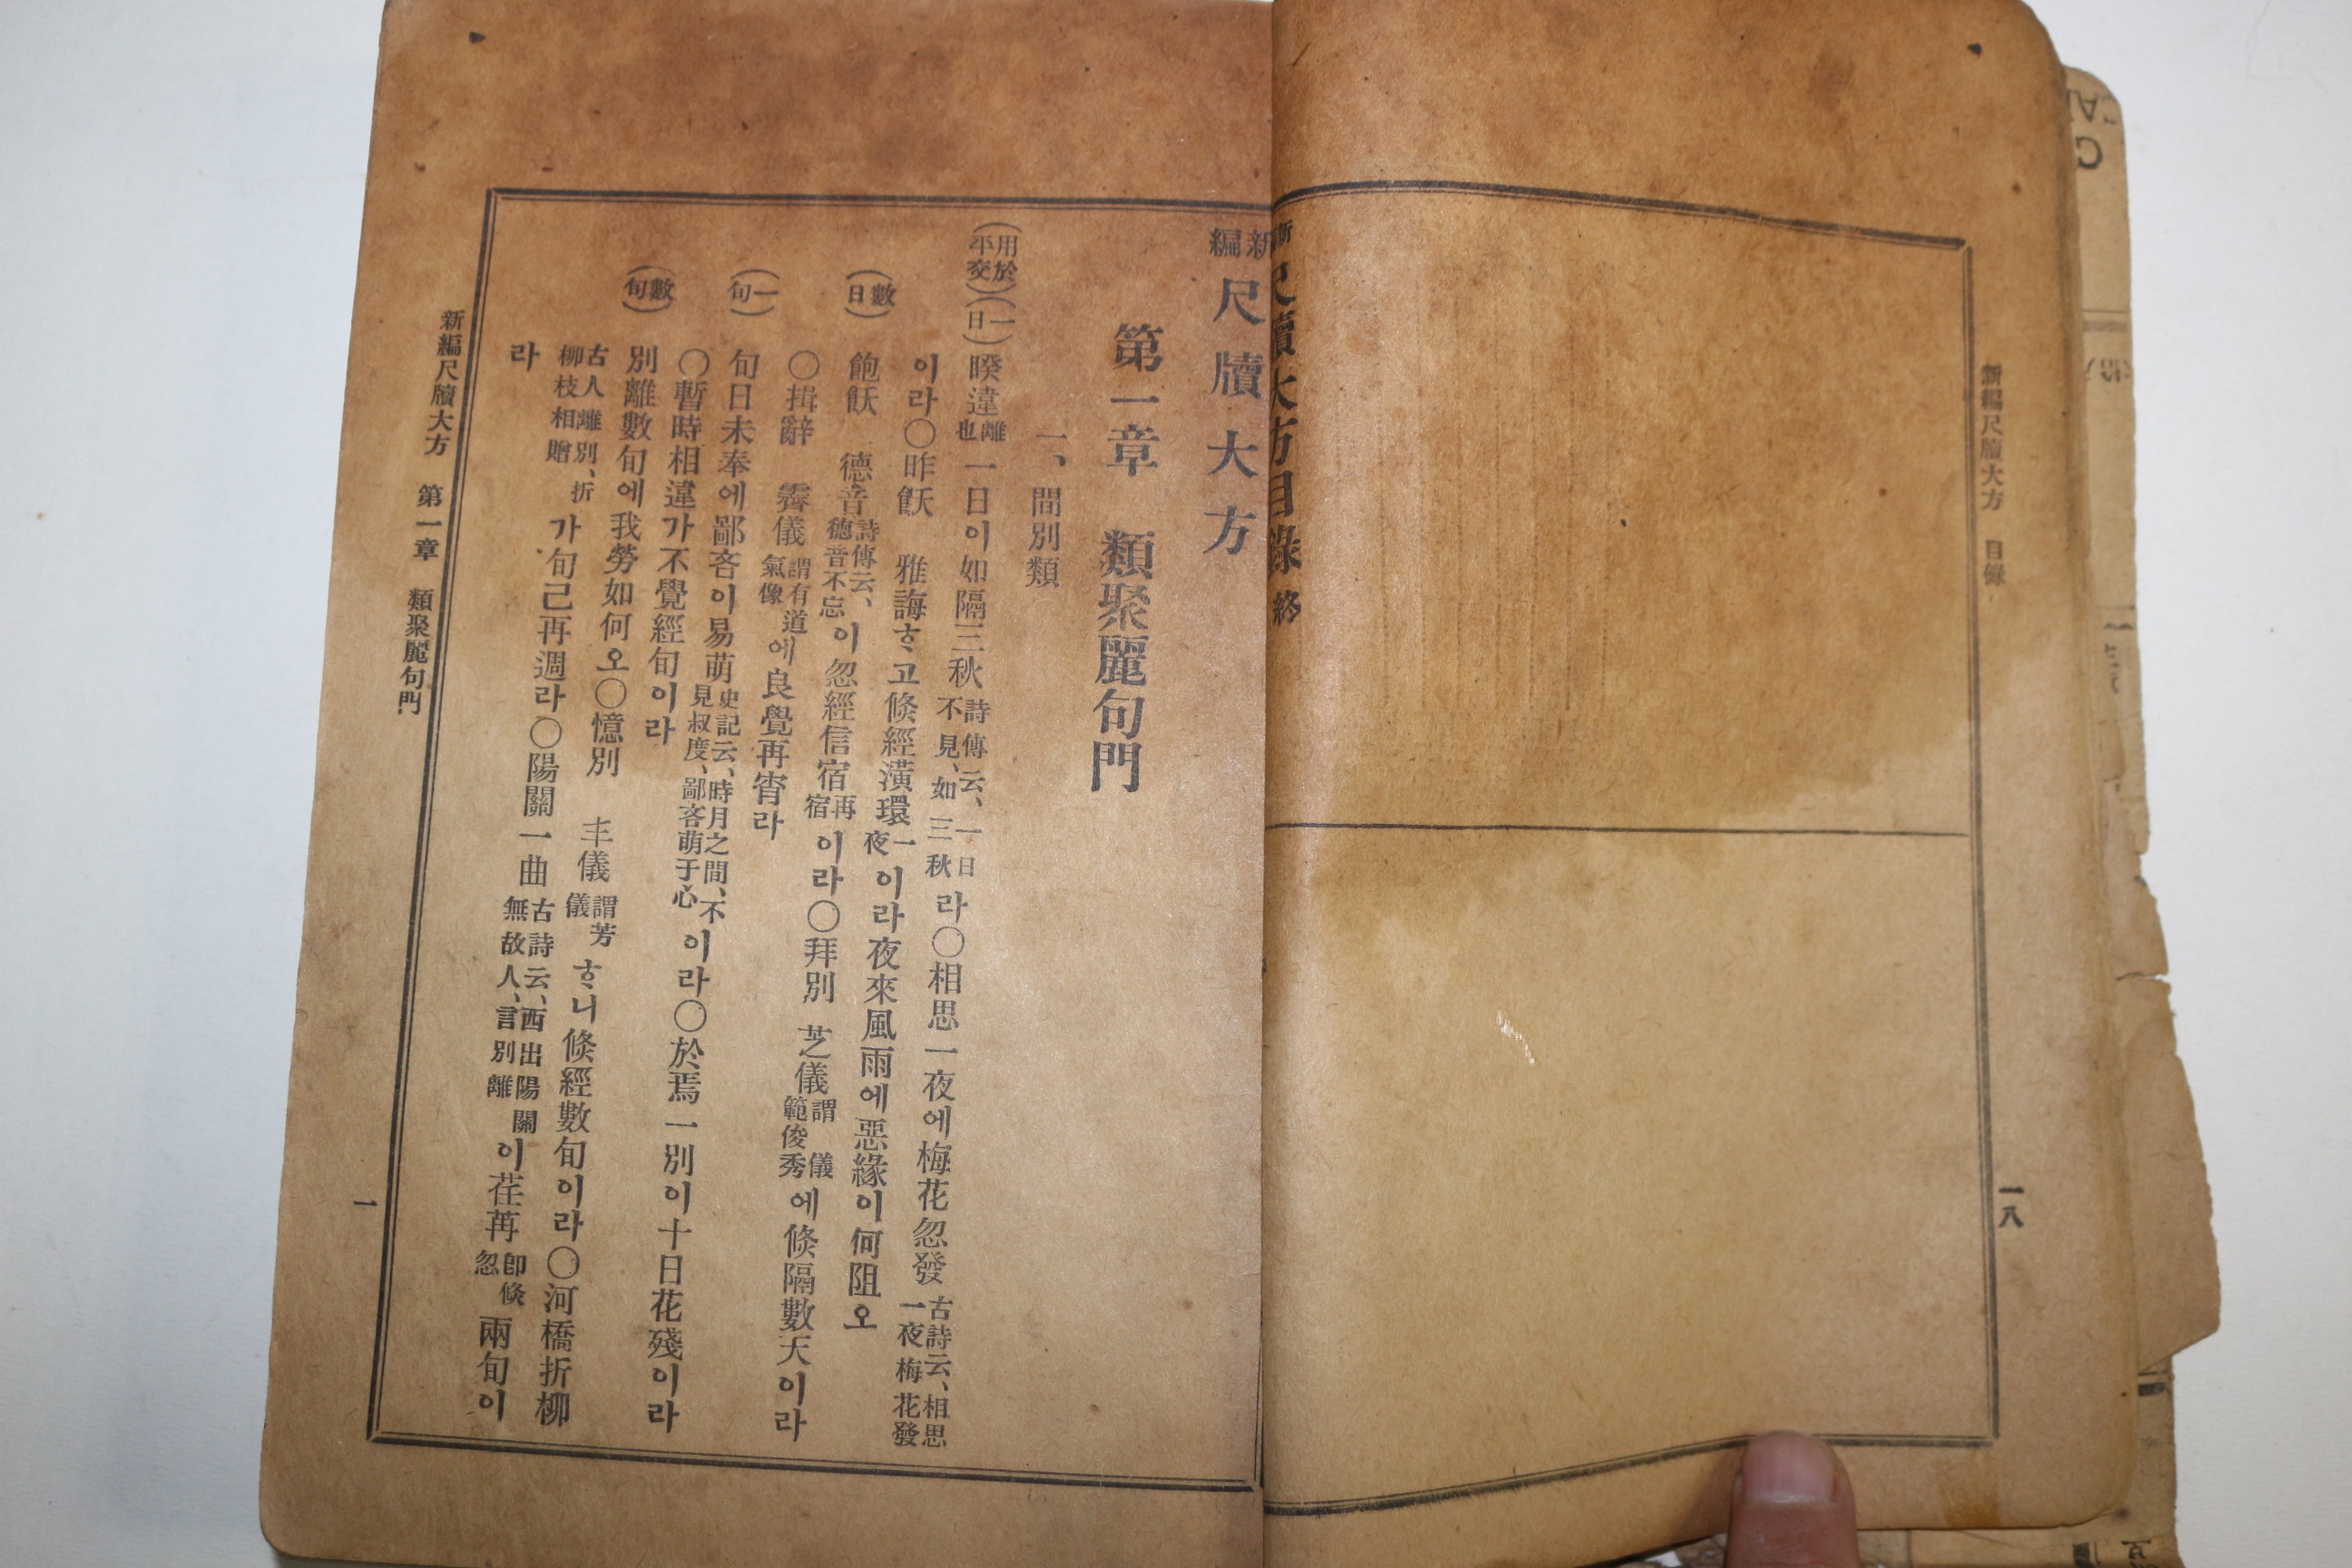 新編尺牘大方 目錄
一八
新
尺牘大方目錄 終
新編 尺牘大方
第一章 類聚麗句門
一、間別類
(用於平交)(一日)暌違 離也 一日이如隔三秋 詩傳云、一日不見、如三秋 라〇相思一夜에梅花忽發 古詩云、相思一夜梅花發
이라〇昨飫 雅誨ᄒᆞ고倐經潢環 一夜 이라夜來風雨에惡緣이何阻오
(數日) 飽飫 德音 詩傳云、德音不忘 이忽經信宿 再宿 이라〇拜別 芝儀 謂儀範俊秀 에倐隔數天이라
〇揖辭 霽儀 謂有道氣像 에良覺再宵라
(一旬) 旬日未奉에鄙吝이易萌 史記云、時月之間、不見叔度、鄙吝萌于心 이라〇於焉一別이十日花殘이라
〇暫時相違가不覺經旬이라
(數旬) 別離數旬에我勞如何오〇憶別 丰儀 謂芳儀 ᄒᆞ니倐經數旬이라〇河橋折柳
古人離別、折柳枝相贈 가旬己再週라〇陽關一曲 古詩云、西出陽關無故人、言別離 이荏苒 卽倐忽 兩旬이
라
新編尺牘大方 第一章 類聚麗句門
一